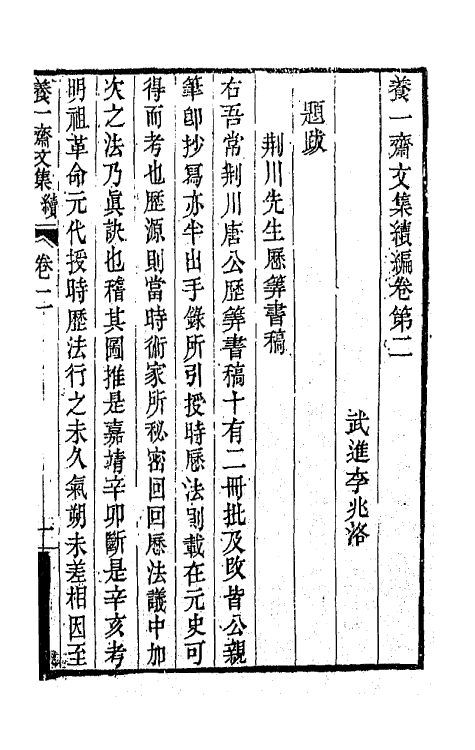 養一齋文集續編卷第二
武進李兆洛
題跋
荆川先生厯筭書稿
右吾常荆川唐公歴筭書稿十有二冊批及改皆公親
筆卽抄寫亦半出手錄所引授時厯法則載在元史可
得而考也歴源則當時術家所秘密回回厯法議中加
次之法乃眞訣也稽其圖推是嘉靖辛卯斷是辛亥考
明祖革命元代授時歴法行之未久氣朔未差相因至
養一齋文集續 卷二 一